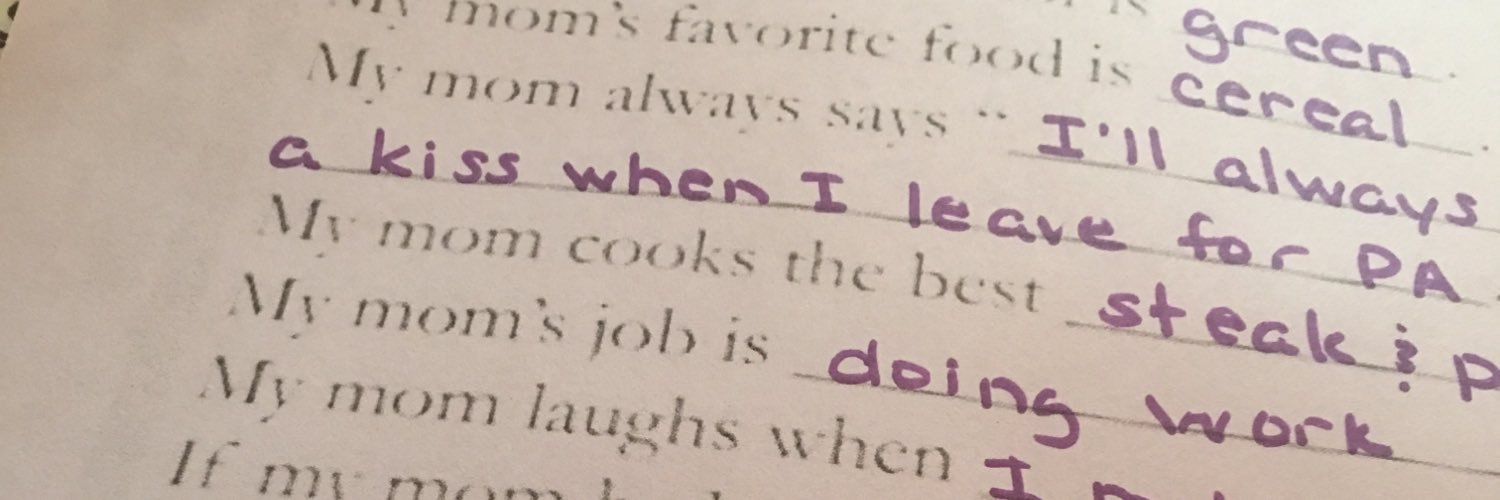 is green.
My mom's favorite food is cereal.
My mom always says "I'll always
a kiss when I leave for PA
My mom cooks the best steak &
My mom's job is doing work
My mom laughs when I
If my mom